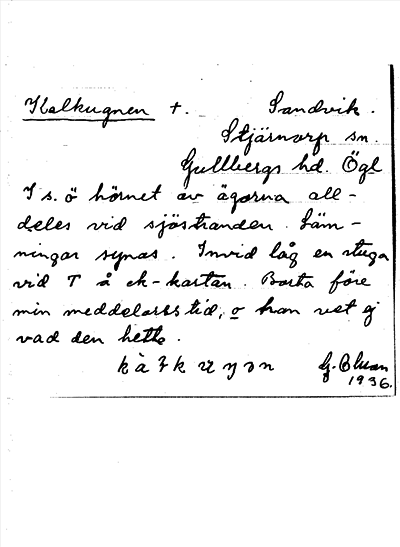 Kalkugnen +. Sandvik.
Stjärnorp sn.
Gullbergs hd. Ögl
I s. ö hörnet av ägorna all-
deles vid sjöstranden. Läm-
ningar synas. Invid låg en stuga
vid T å ek-kartan. Borta före
min meddelares tid, o han vet ej
vad den hette.
1936.